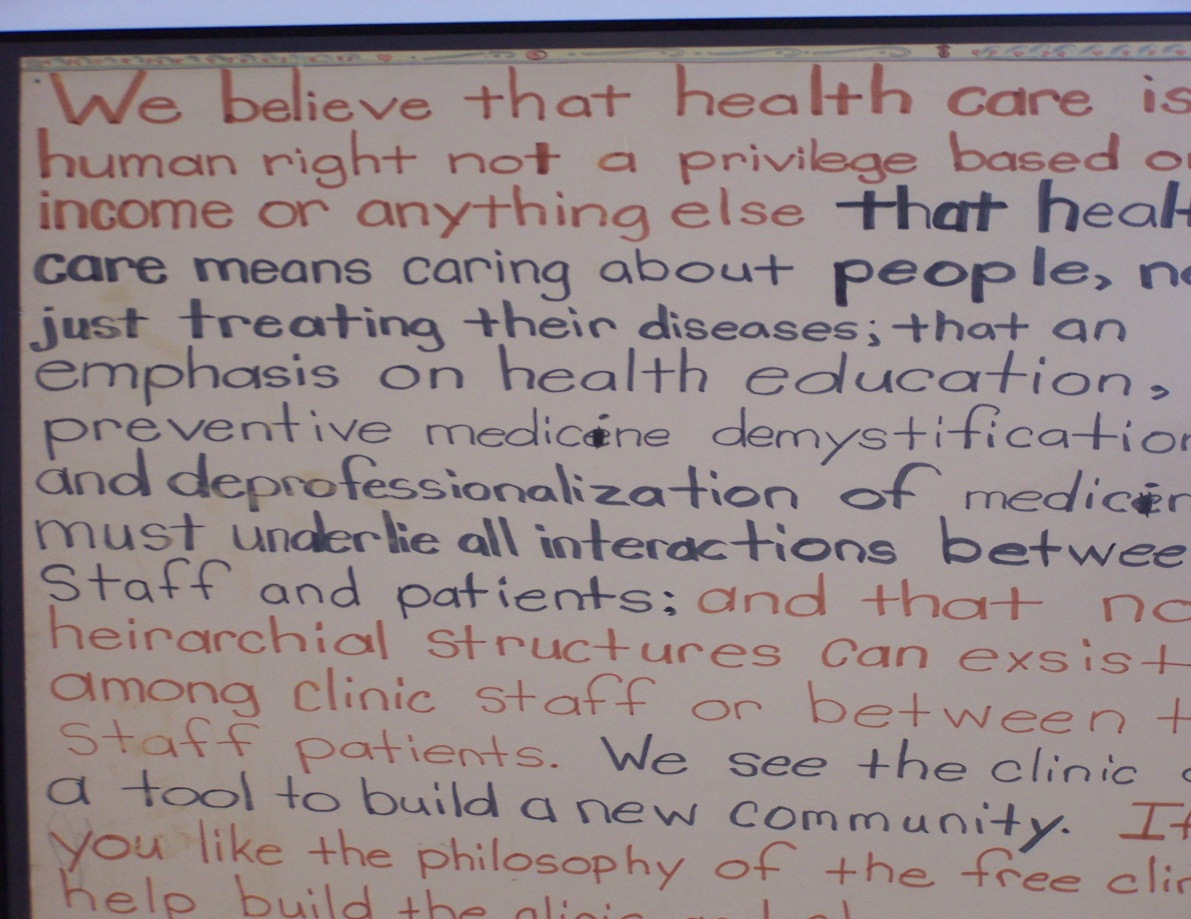 We believe that health care is
human right not a privilege based
income or anything else that
care means caring about people,
just treating their diseases; that an
emphasis on health education,
preventive medicine demystification
and deprofessionalization of
must underlie all interactions
Staff and patients; and that
heirarchial structures can exsist
among clinic staff or between
staff patients. We see the clinic
a tool to build a new community. If
you like the philosophy of the free
help build the clinic